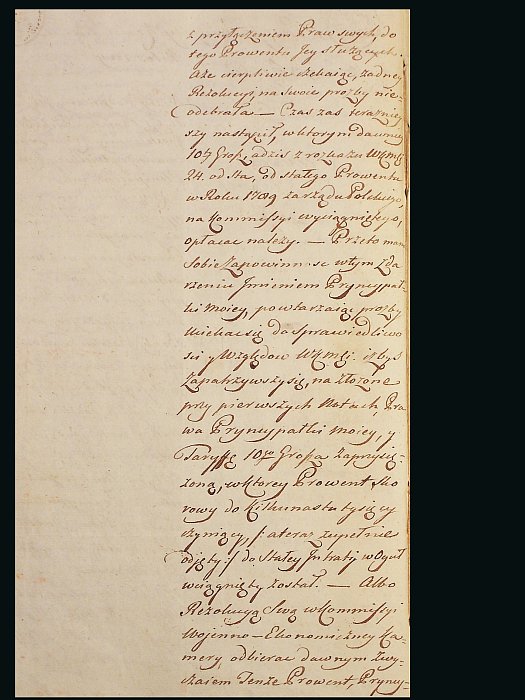 z przyłączeniem Praw swych, do
tego Prowentu Jey służących.
Aże cierpliwie czekaiąc, żadney
Rezolucyi na swoie prozby nie-
odebrała. — Czas zaś teraźniey
szy nastąpił, w ktorym dawny
10ty Grosz, a dziś z rozkazu WKMći
24. od sta, od stałego Prowentu
w Roku 1789 za rządu Polskiego,
na Kommissyi wyciągniętego,
opłacać należy. — Przeto mam
sobie za powinność w tym zda
rzeniu Jmieniem Pryncypał-
ki moiey, powtarzaiąc, prozby
uciekać się do sprawiedliwo
ści y Względow WKMći. iżbyś
zapatrzywszy się, na złożone
przy pierwszych Notach Pra
wa Pryncypałki moiey, y
Taryffę 10go Grosza zaprzysię-
żoną, w ktorey Prowent Sko
rowy do Kilkunastu tysięcy
czyniący, /: a teraz zupełnie
odjęty :/ do Stałey Jntraty w Oguł
wciągnięty został. — Albo
Rezolucyą Swą w Kommissyi
Wojenno - Ekonomiczney Ka-
mery, odbierać dawnym zwy-
czaiem Tenże Prowent, Pryncy-